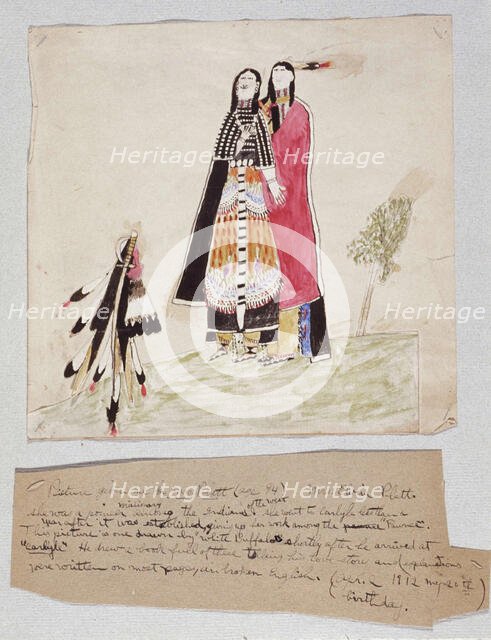 Heritage Heritage
Heritage Heritage
Heritage Heritage
Picture (age 94)
of the war
missionary
She was a pioneer among the Indians & she went to Carlyle at then a
year after it was established, giving up her work among the "Pawnee".
This picture is one drawn by "White Buffalo" shortly after he arrived at
"Carlyle" He drew a book full of these telling his love story and (explanations
were written on most pages, in broken English. (Dec. 1912 my
birthday.